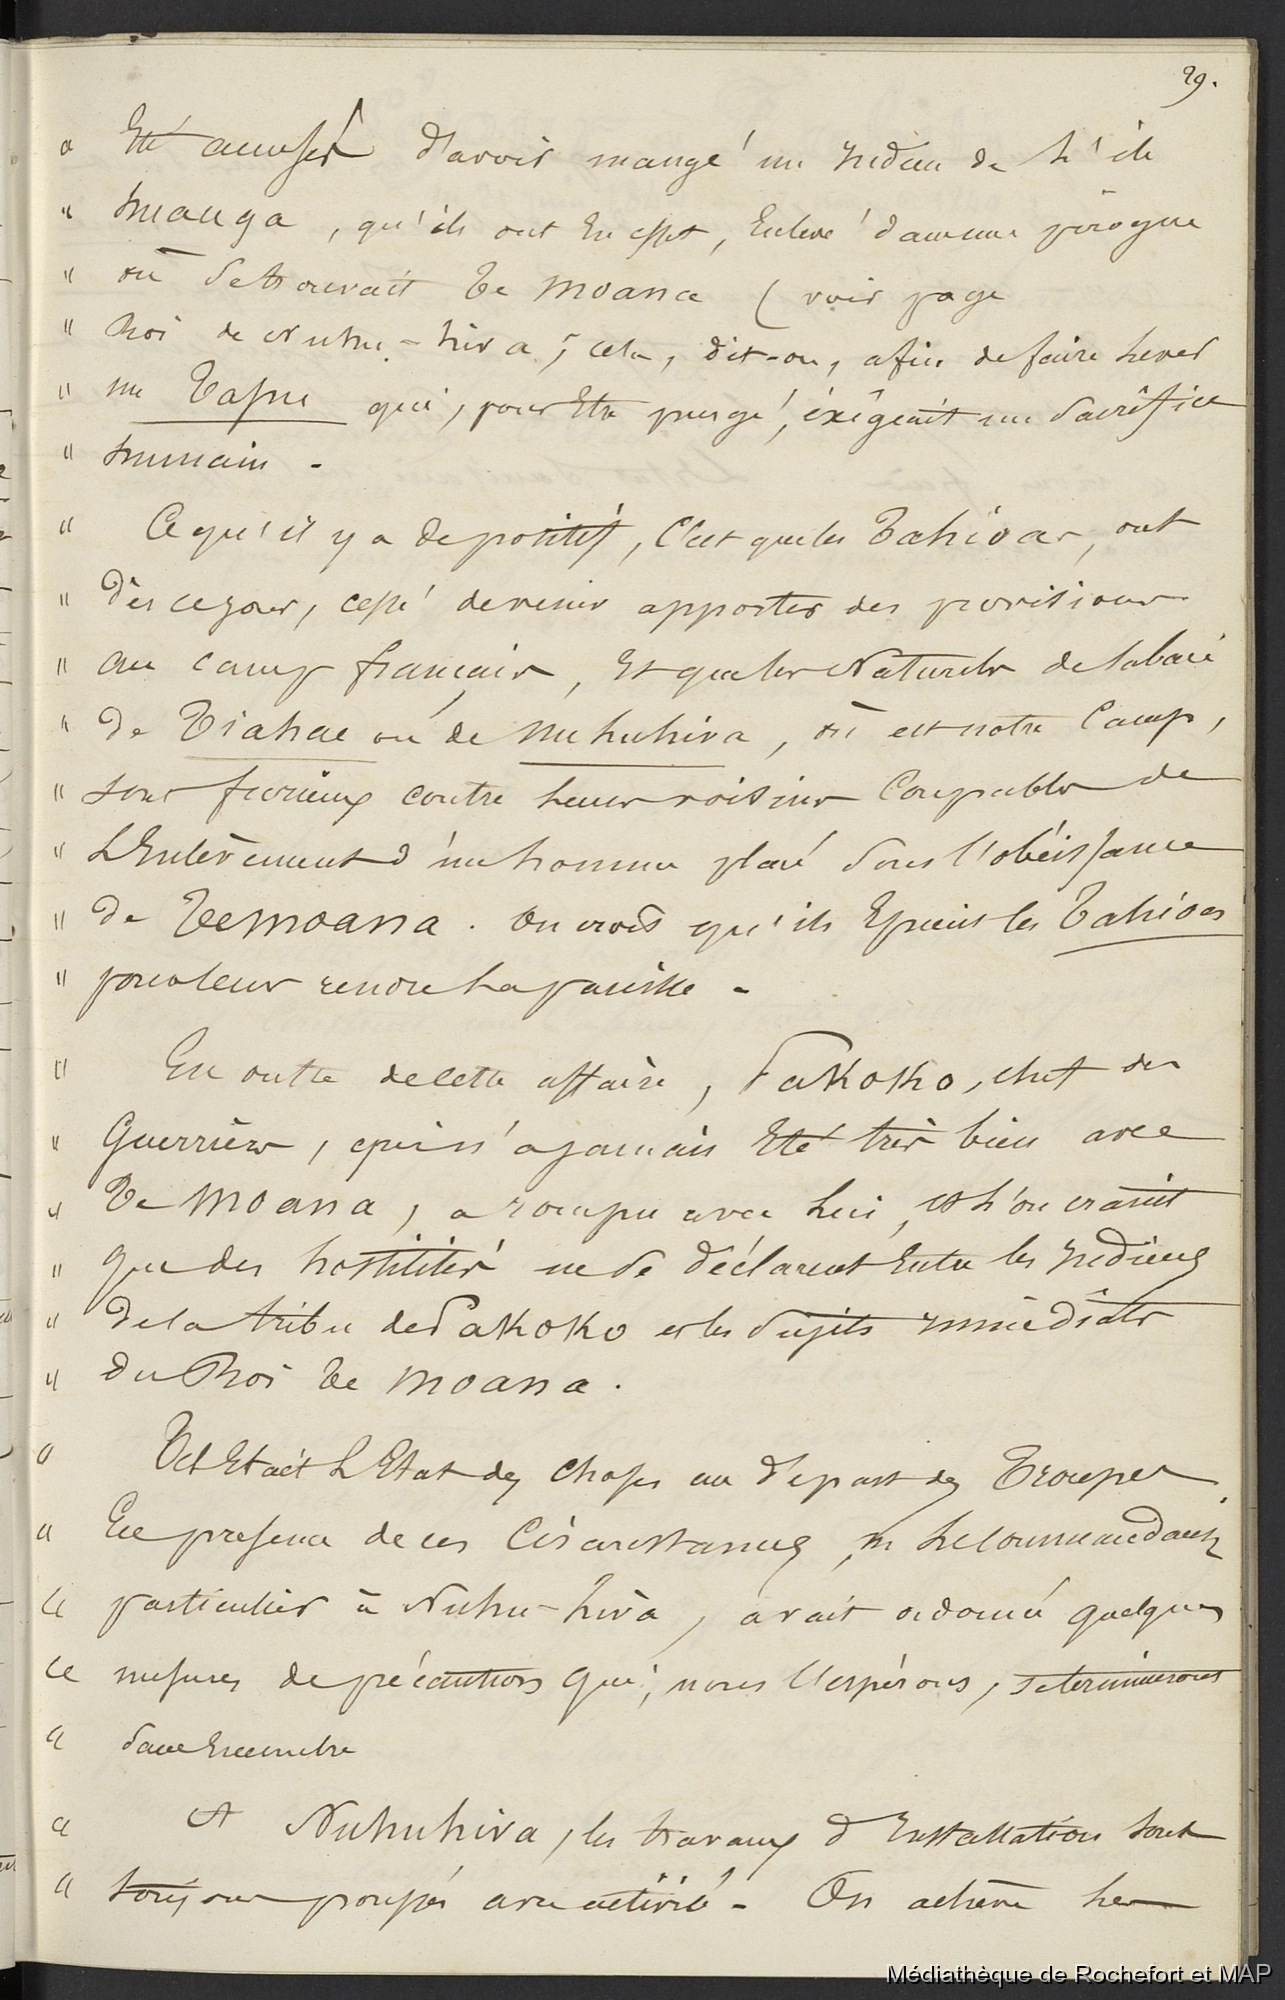 29.
" Eté accusés d'avoir mangé un Indien de L'ile
" huauga, qu'ils ont En effet, Enlevé dans une pirogue
" où Se trouvait Te Moana (voir page
" Roi de Nuhu-hiva; cela, dit-on, afin de faire Lever
" un Tapu qui, pour Etre purgé, éxigeait un Sacrifice
" humain.
" Ce qu'il y a de positif, C'est que les Tahioas, ont
" dès ce jour, cessé de venir apporter des provisions
" au camp français, Et que les Naturels de la baie
" De Tiahae ou de Nuhuhiva, où est notre Camp,
" sont furieux contre Leurs voisins Coupables de
" L'Enlèvement d'un homme placé Sous l'obéissance
" de Te Moana. On croit qu'ils Epient les Tahioas
" pour leur rendre La pareille.
" En outre de cette affaire, Pakoko, chef des
" Guerriers, qui n'a jamais Eté très bien avec
" Te Moana, a rompu avec Lui, et L'on craint
" que des hostilités ne Se déclarent Entre les Indiens
" de la tribu de Pakoko et les Sujets immédiats
" du Roi Te Moana.
" Tel Etait L'Etat des Choses au départ des Troupes.
" En presence de ces Circonstances, M Le Commandant
" particulier à Nuhu-hiva, avait ordonné quelques
" mesures de précautions qui, nous l'espérons, se termineront
" Sans Encombre
" A Nuhuhiva, les travaux d'Installation sont
" toujours poussés avec activité. On achève Les
Médiathèque de Rochefort et MAP